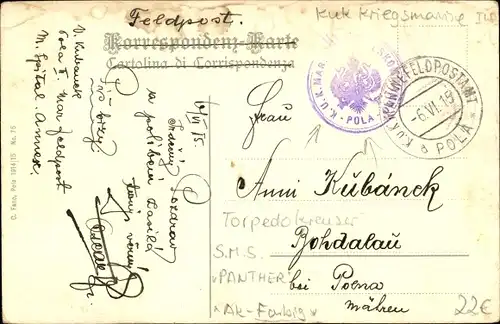 Feldpost.
kuk Kriegsmarine
Korrespondenz-Karte
Cartolina di Corrispondenza
V. Kubanek
Pola I Mar Feldpost
M. Spital Annex
G. Fano, Pola 1914/15 No. 76
6/VI 15
Srdečný Pozdrav
a políbení zasílá
tvůj věrný
K.U.K. MAR
- POLA -
K.U.K. MARINEFELDPOSTAMT
-6.VI.15
* POLA *
Frau
Anni Kubánek
Torpedokreuzer
Bohdalau
S.M.S.
"PANTHER"
bei Polna
*Ak-Farbig*
Mähren
22€